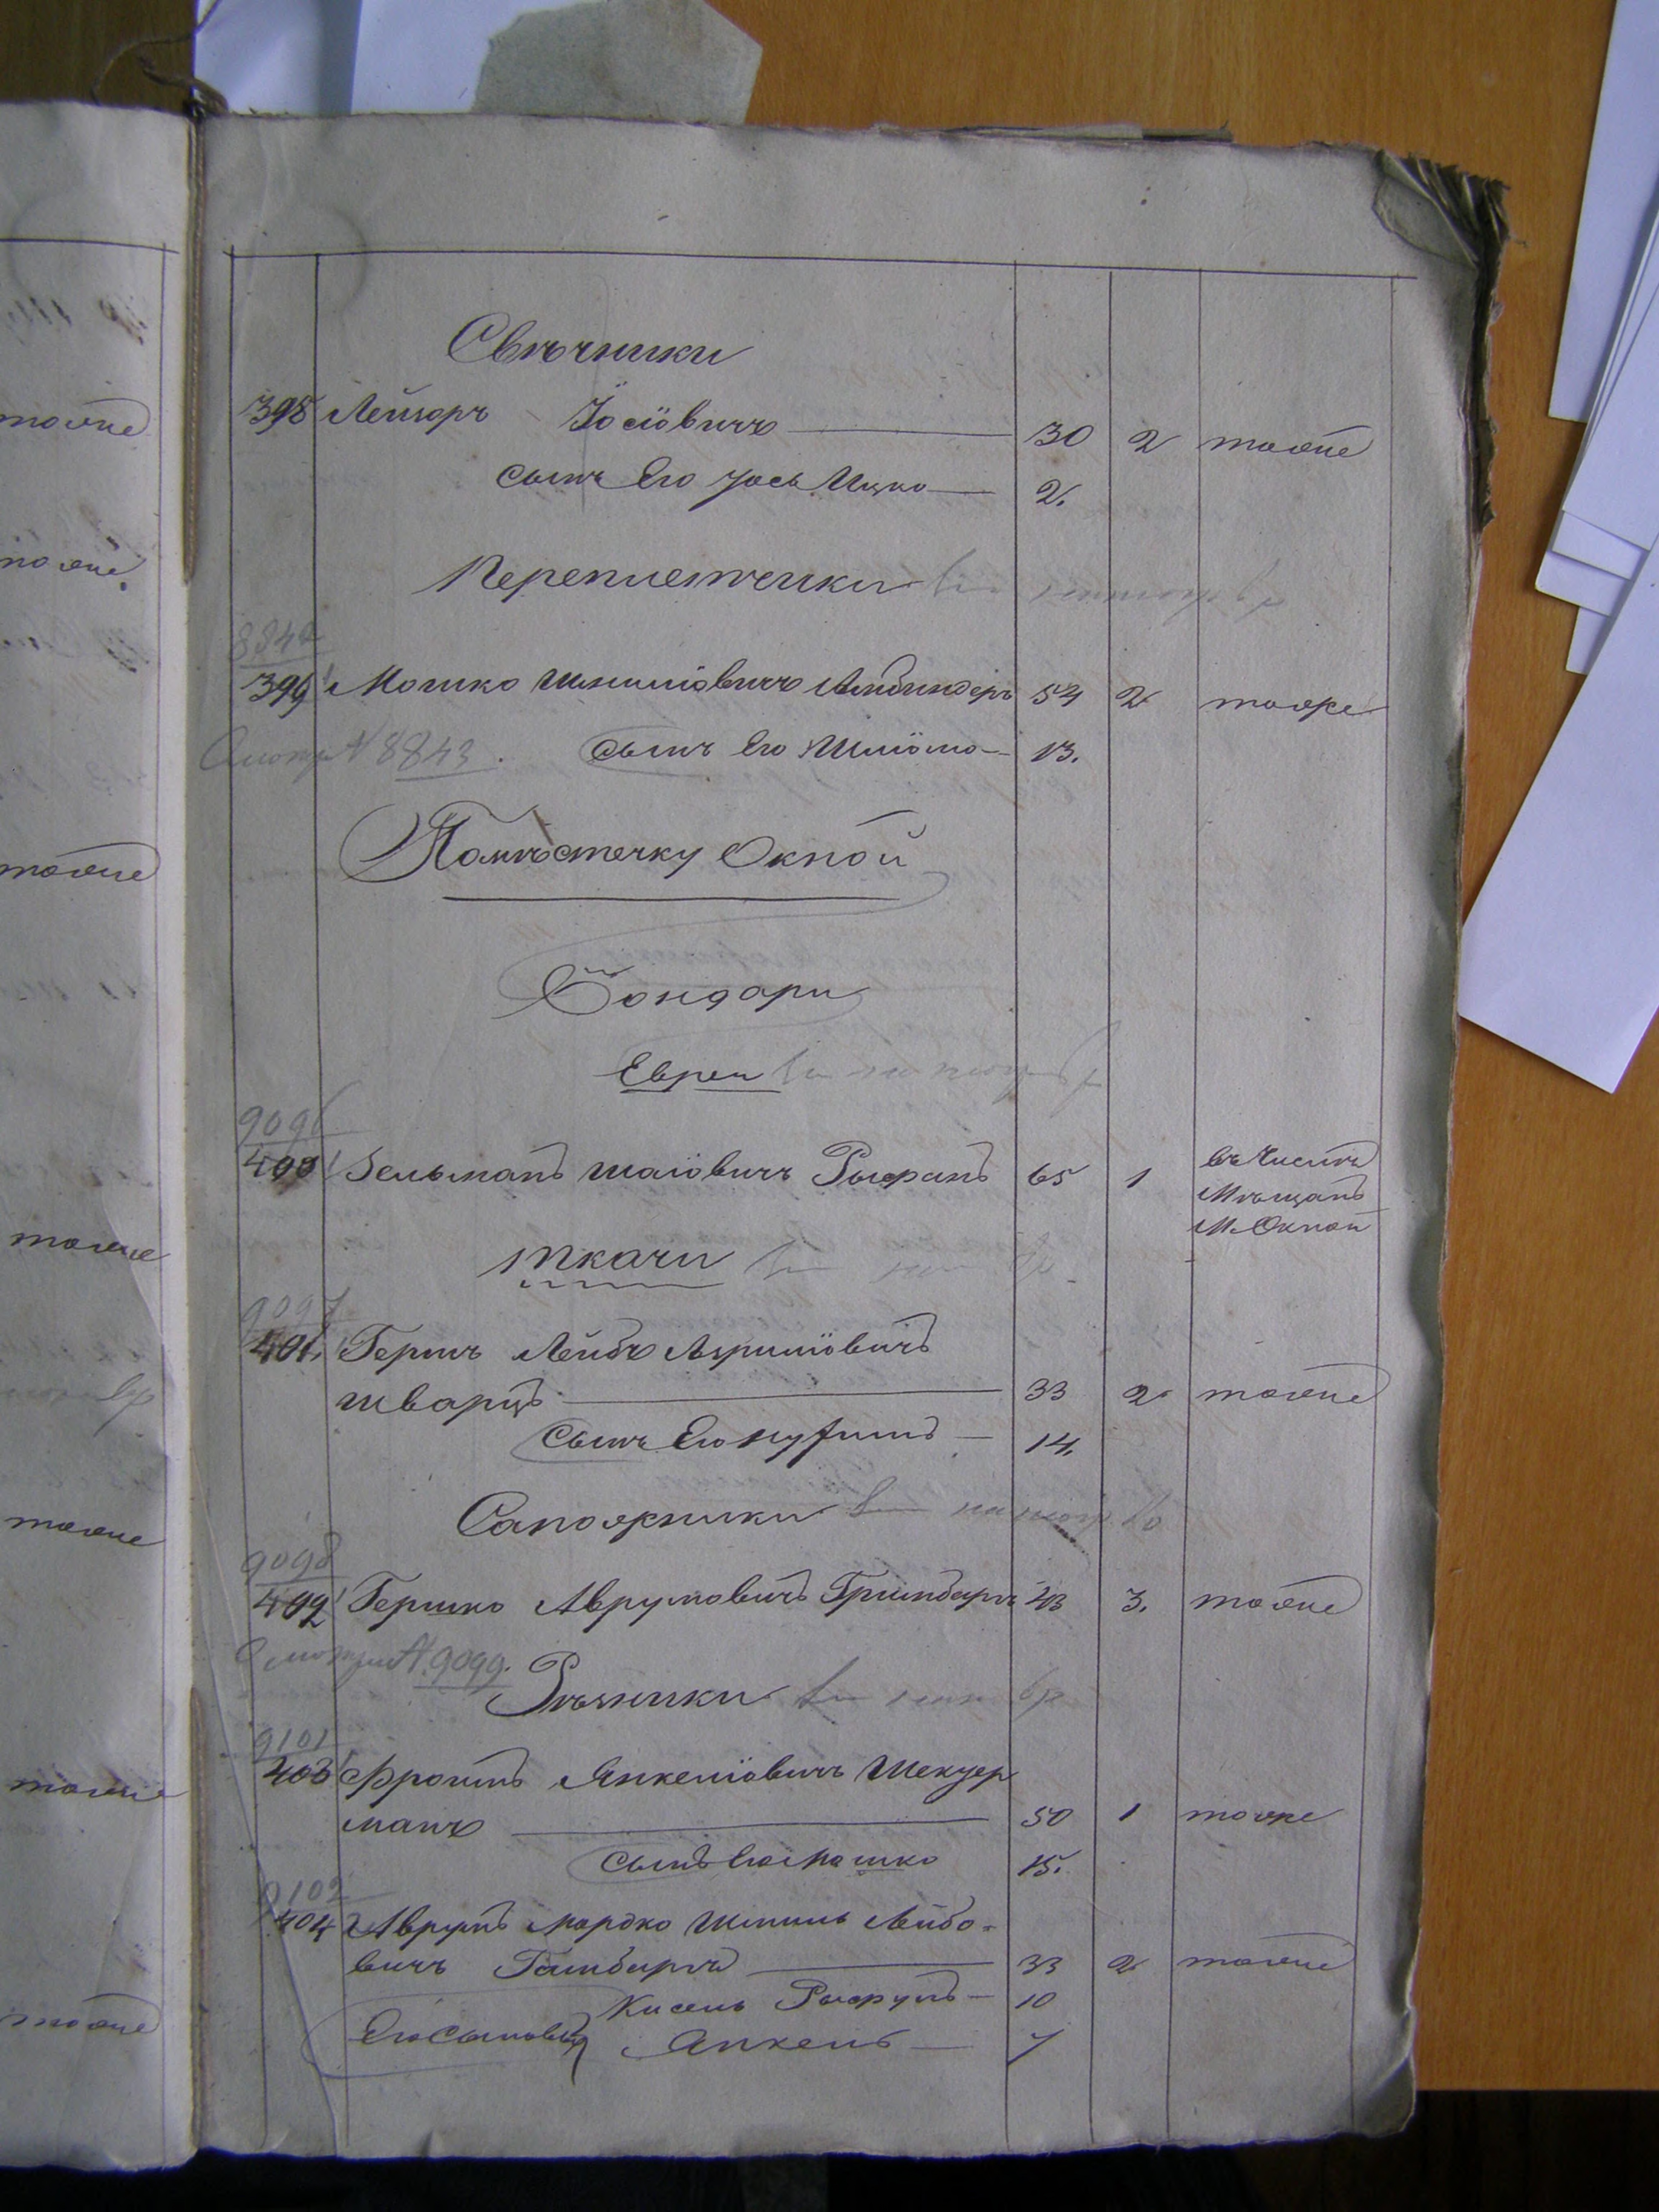 Свѣчники
398 Лейзоръ Іосіовичъ 30 2 тоже
сынъ Его Іось Ицко 2.
Переплетчики
8842
399 Мошко Шмиліовичъ Аинбиндеръ 54 2 тоже
Смотри № 8843. сынъ Его Шліомо 13.
По мѣстечку Окной
Бондари
Евреи
9096
400 Зельманъ Шаіовичъ 65 1 въ числѣ
мѣщанъ
М. Окной
Ткачи
9097
401. Гершъ Лейбъ
Шварцъ 33 2 тоже
Сынъ Его Нухимъ 14.
Сапожники
9098
402 Гершко Аврумовичъ Гринбергъ 43 3. тоже
Смотри № 9099.
Рѣзники
9101
403 Фроимъ Янкеліовичъ Шехтер
манъ 50 1 тоже
Сынъ Его Мошко 15.
9102
404 Аврумъ Мордко Шмиль Лейбо-
вичъ Гамбургъ 33 2 тоже
Кисель 10
Его Сыновья Янкель 7
тоже
тоже
тоже
тоже
тоже
тоже
тоже